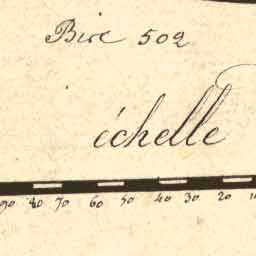 Bire 502
échelle
90 80 70 60 50 40 30 20 10